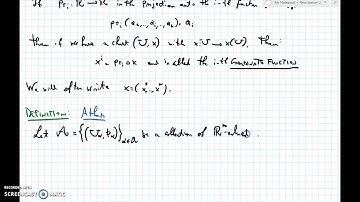 If pr_i: ℝ^n → ℝ is the projection onto the i-th factor
pr_i (a_1, ..., a_i, ..., a_n) = a_i
Then if we have a chart (U, x) with x: U → x(U), then:
x^i = pr_i ∘ x and is called the i-th Coordinate Function
We will often write x = (x^1, ..., x^n).
Definition: Atlas
Let A = {(U_α, φ_α)}_{α∈A} be a collection of ℝ^n-valued
RECORDED WITH
SCREENCAST MATIC